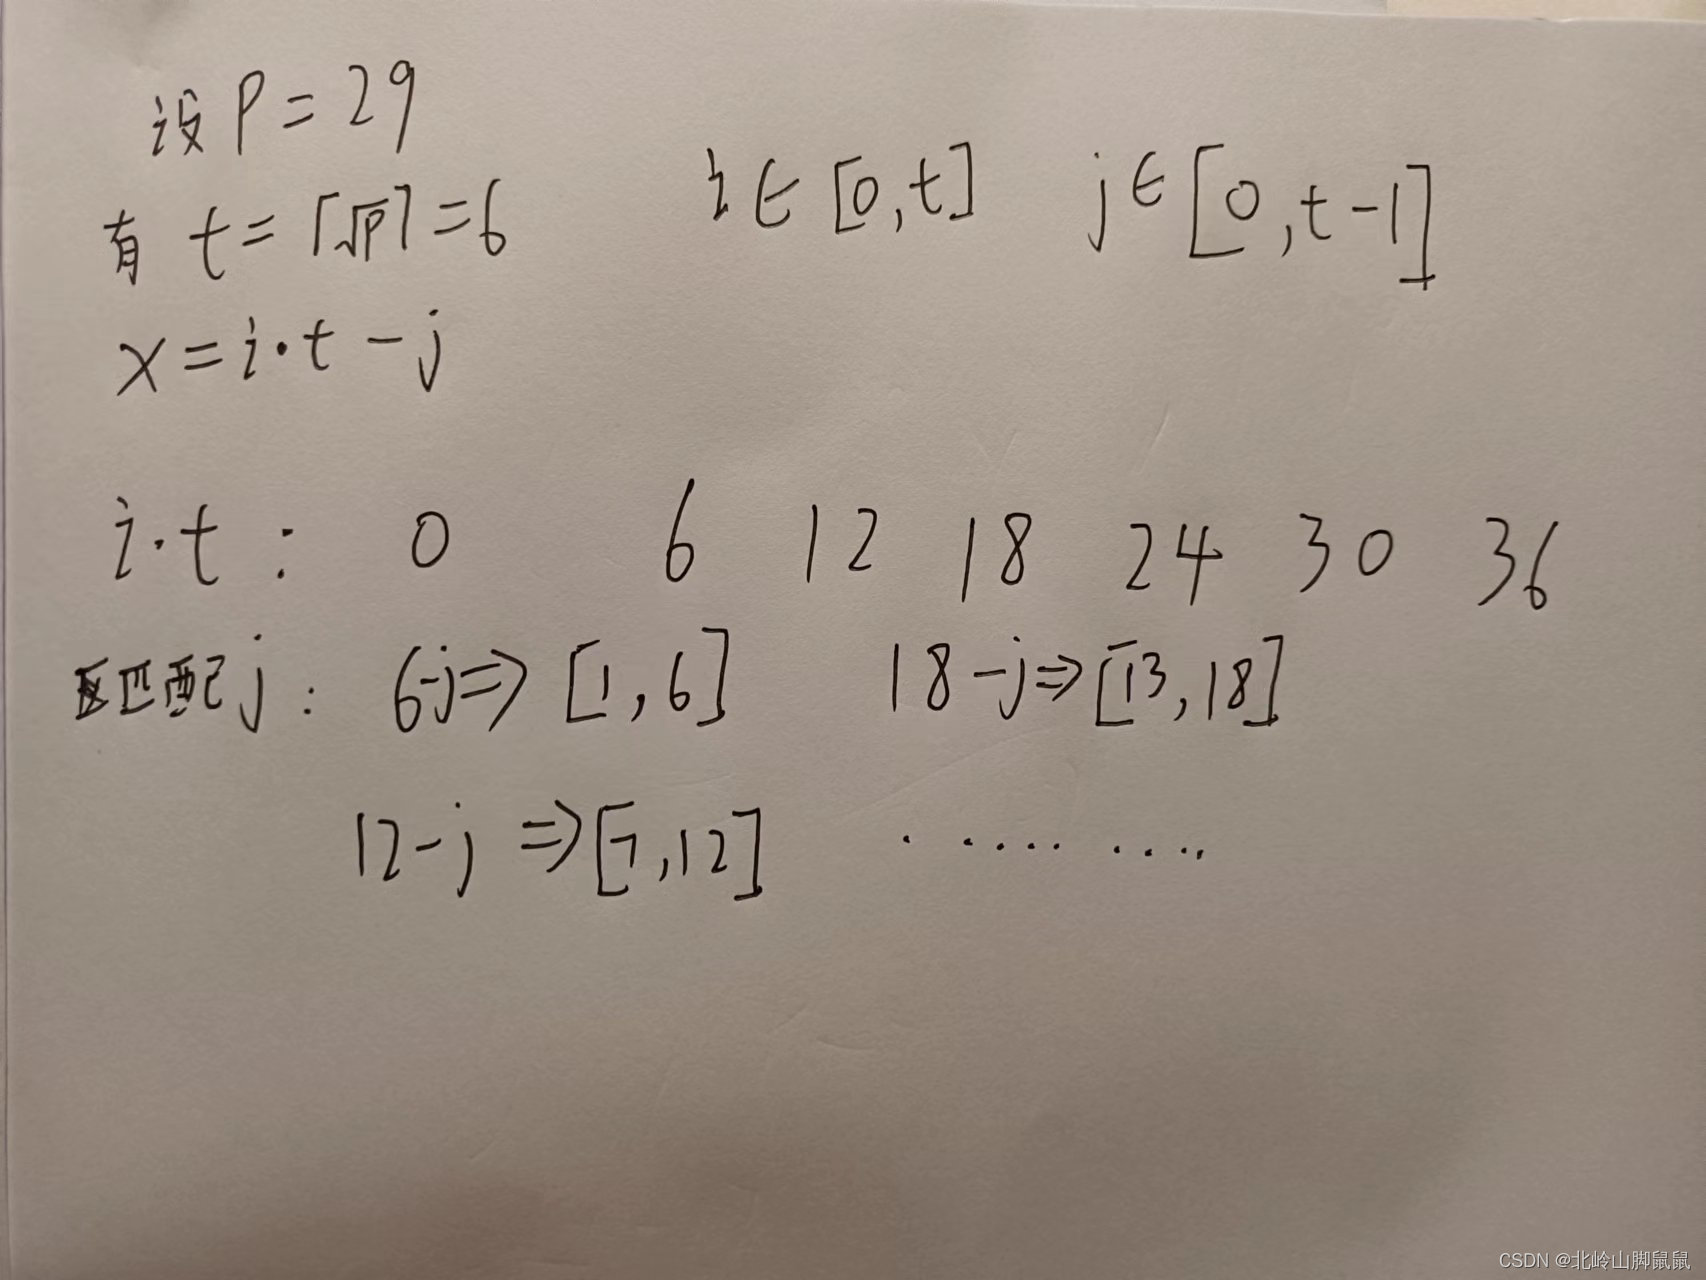 设 P = 29
有 t = ⌈√P⌉ = 6
i ∈ [0, t] j ∈ [0, t-1]
x = i·t - j
i·t : 0 6 12 18 24 30 36
匹配j : 6-j ⇒ [1, 6] 18-j ⇒ [13, 18]
12-j ⇒ [7, 12] · ···· ····
CSDN @北岭山脚鼠鼠